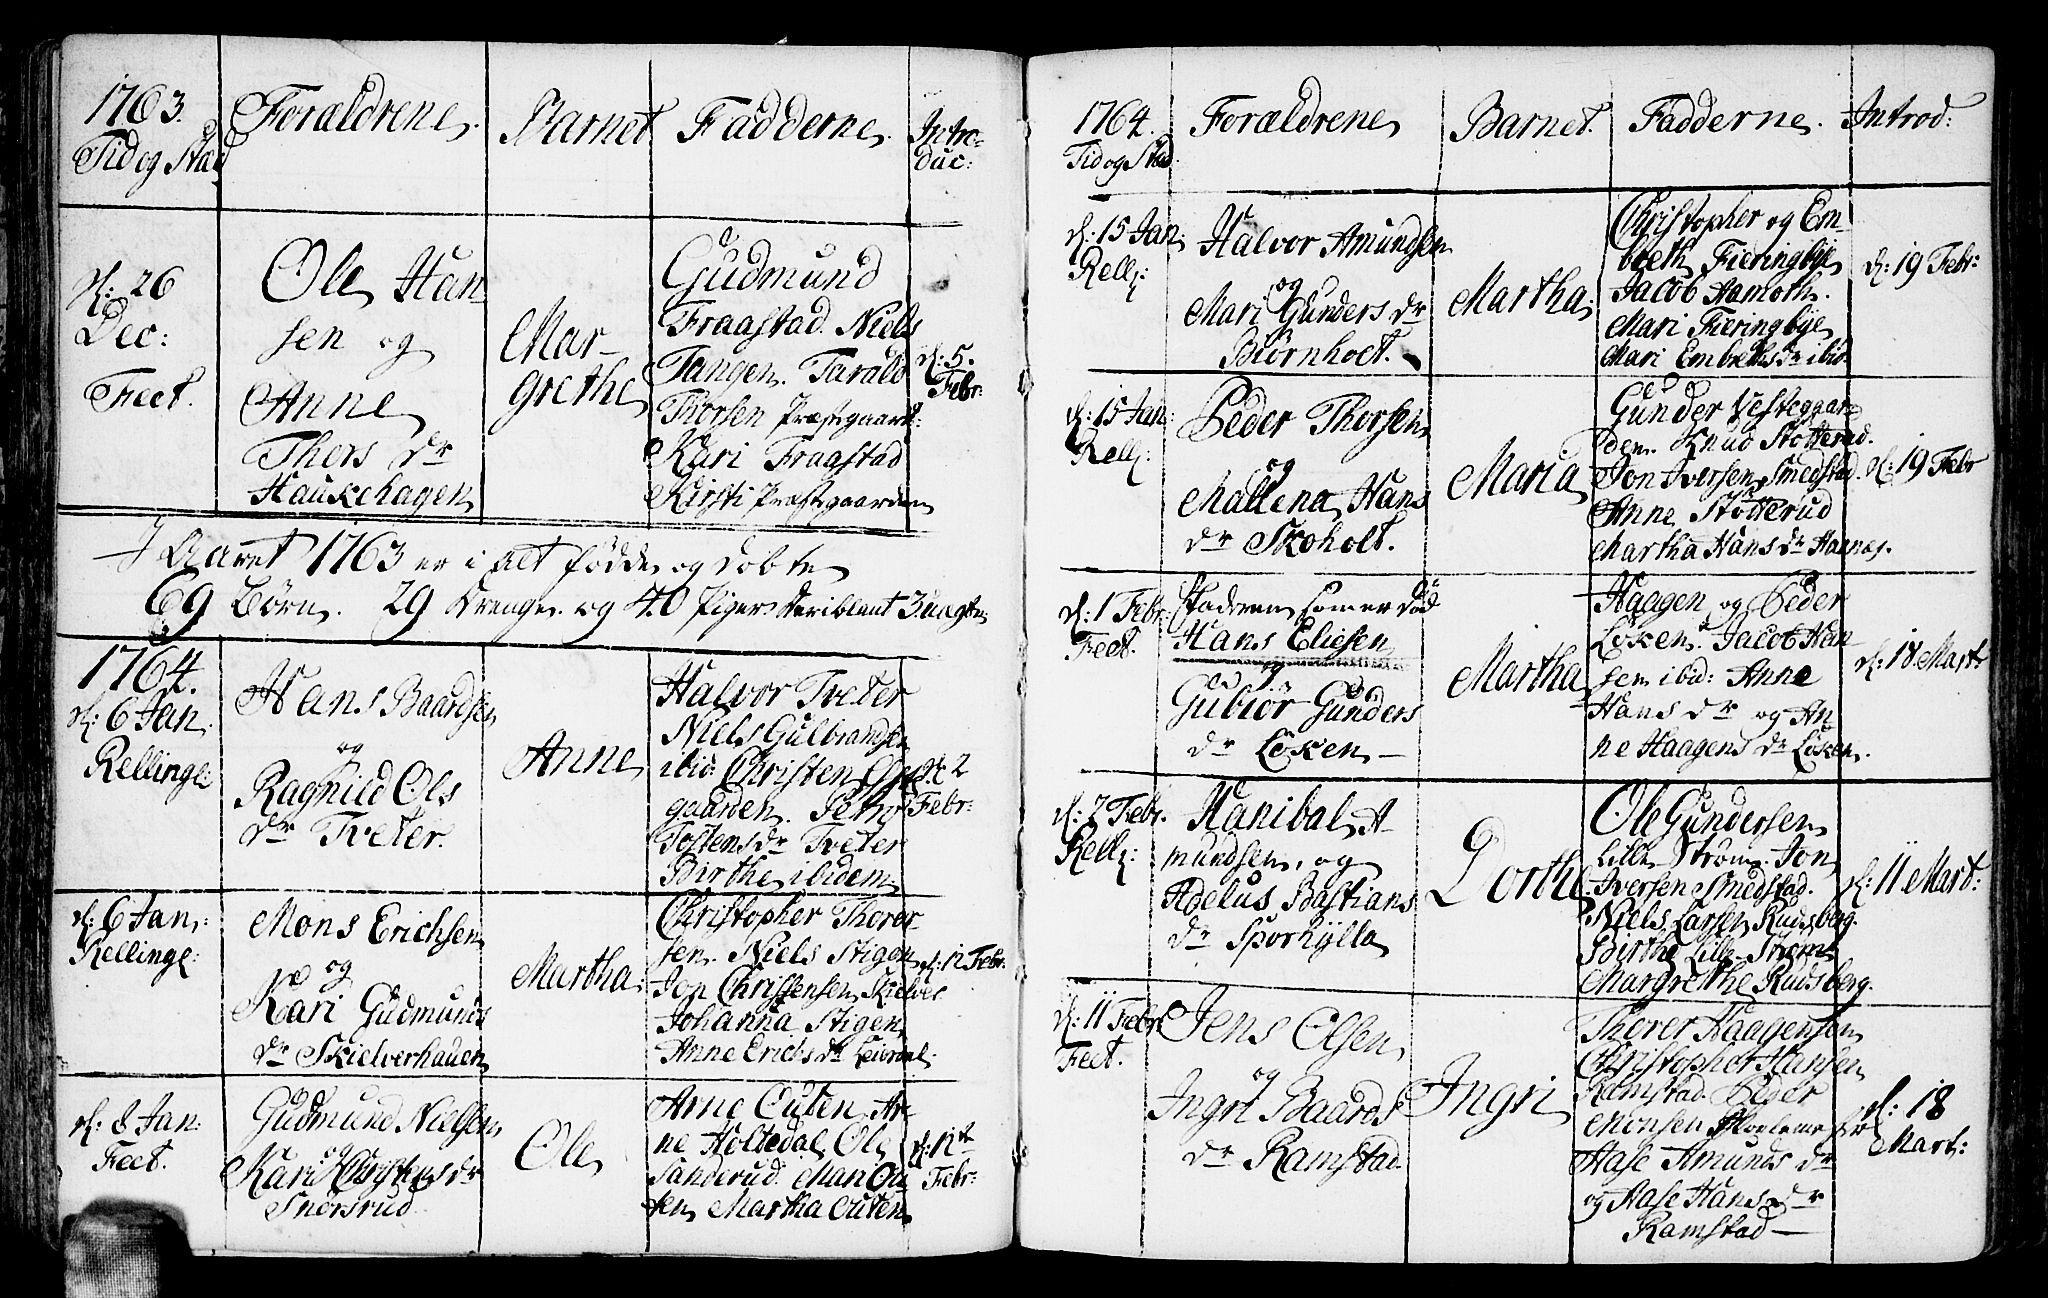 1763.
Tid og Stæd
Forældrene.
Barnet
Fadderne.
Intro-
duc:
d: 26
Dec:
Feet.
Ole Han
sen og
Anne
Thors dr
Haukehagen
Mar-
grethe
Gudmund
Fraastad. Niels
Tangen. Tarald
Thorsen Præstgaard:
Kari Fraastad
Kirsti Præstgaarden
d: 5.
Febr:
I Aaret 1763 er i alt fødde og døbte
69 Børn. 29 Drenge og 40 Piger deriblant 3 uægte
1764.
d: 6 Jan:
Rellinge:
Hans Baardsen
og
Ragnild Ols
dr Tveter.
Anne
Halvor Tveter
Niels Gulbrandsen
ibid: Christen
gaarden.
Tostens dr Tveter
Birthe ibidem
d: 2
Febr:
d: 6 Jan:
Rellinge:
Mons Erichsen
og
Kari Gudmunds
dr Skielverhauen
Martha:
Christopher Thorer-
sen. Niels Stigen
Jon Christensen Skielver
Johanna Stigen
Anne Erichs dr
d: 12 Febr:
d: 8 Jan:
Feet.
Gudmund Nielsen
og
Kari Christens dr
Snorsrud
Ole
Arne Outen Ar-
ne Holtedal Ole
Sanderud. Mari Ou
ten Martha Outen
d: 12te
Febr:
1764.
Tid og Stæd.
Forældrene
Barnet.
Fadderne.
Introd:
d: 15 Jan:
Rell:
Halvor Amundsen
og
Mari Gunders dr
Biørnholt.
Martha:
Christopher og Em-
breth Fieringbye
Jacob Aamoth.
Mari Fieringbye
Mari Embreths dr ibid.
d: 19 Febr:
d: 15 Jan:
Rell:
Peder Thorsen
og
Mallena Hans
dr Skoholt.
Maria
Gunder Vesteggar-
den. Knud Stotterud.
Jon Iversen Smedstad.
Anne Stotterud
Martha Hans dr Haanæs.
d: 19 Febr
d: 1 Febr:
Feet.
Faderen som er død
Hans Eliesen
og
Gubiør Gunders
dr Løken
Martha
Haagen og Peder
Løken. Jacob Han
sen ibid: Anne
Hans dr og An
ne Haagens dr Løken.
d: 18 Mart:
d: 2 Febr.
Rell:
Hanibal A-
mundsen, og
Adelus Bastians
dr Sporhylla
Dorthe
Ole Gundersen
Lille Strøm. Jon
Iversen Smedstad.
Niels Larsen Rudsberg.
Birthe Lille-Strøm
Margrethe Rudsberg.
d: 11 Mart:
d: 11 Febr
Feet.
Jens Olsen
og
Ingri Baards
dr Ramstad.
Ingri
Thorer Haagensen
Christopher Hansen
Ramstad. Peder
Monsen
Aase Amunds dr
og Aase Hans dr
Ramstad
d: 18
Mart: